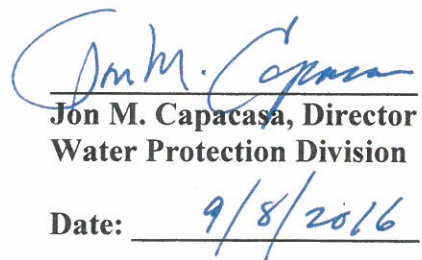 Jon M. Capacasa
Jon M. Capacasa, Director
Water Protection Division
Date: 9/8/2016